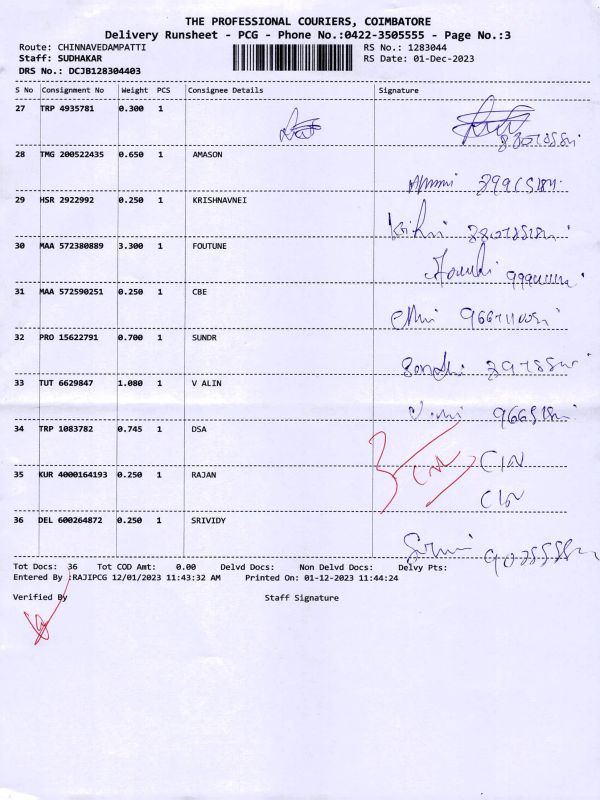 THE PROFESSIONAL COURIERS, COIMBATORE
Delivery Runsheet - PCG - Phone No.:0422-3505555 - Page No.:3
Route: CHINNAVEDAMPATTI RS No.: 1283044
Staff: SUDHAKAR RS Date: 01-Dec-2023
DRS No.: DCJB128304403
S No Consignment No Weight PCS Consignee Details Signature
27 TRP 4935781 0.300 1
28 TMG 200522435 0.650 1 AMASON
29 HSR 2922992 0.250 1 KRISHNAVNEI
30 MAA 572380889 3.300 1 FOUTUNE
31 MAA 572590251 0.250 1 CBE
32 PRO 15622791 0.700 1 SUNDR
33 TUT 6629847 1.080 1 V ALIN
34 TRP 1083782 0.745 1 DSA CIN
35 KUR 4000164193 0.250 1 RAJAN CIN
36 DEL 600264872 0.250 1 SRIVIDY
Tot Docs: 36 Tot COD Amt: 0.00 Delvd Docs: Non Delvd Docs: Delvy Pts:
Entered By :RAJIPCG 12/01/2023 11:43:32 AM Printed On: 01-12-2023 11:44:24
Verified By Staff Signature